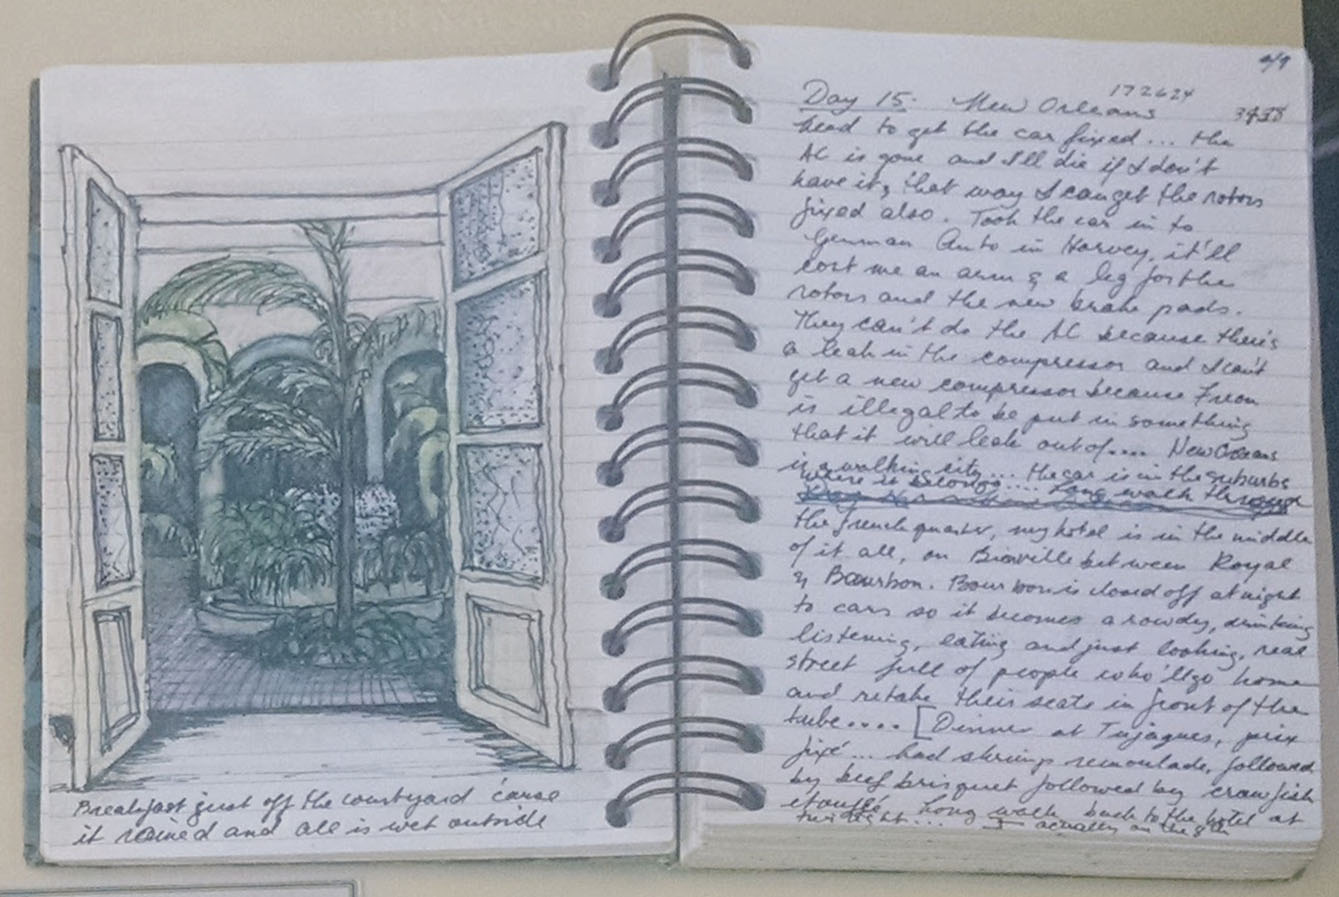 Breakfast just off the courtyard 'cause
it rained and all is wet outside
9/9
172624
Day 15. New Orleans
head to get the car fixed... the
AC is gone and I'll die if I don't
have it, that way I can get the rotors
fixed also. Took the car in to
German Auto in Harvey, it'll
cost me an arm & a leg for the
rotors and the new brake pads.
They can't do the AC because there's
a leak in the compressor and I can't
get a new compressor because Freon
is illegal to be put in something
that it will leak out of.... New Orleans
is a walking city... the car is in the suburbs
where it belongs.... Long walk through
the french quarter, my hotel is in the middle
of it all, on Bienville between Royal
& Bourbon. Bourbon is closed off at night
to cars so it becomes a rowdy, drinking
listening, eating and just looking, real
street full of people who'll go home
and retake their seats in front of the
tube.... [Dinner at Tujagues, prix
fixé... had shrimp remoulade, followed
by beef brisquet followed by crawfish
etouffé, Long walk back to the hotel at
twilight... ] actually on the 8th